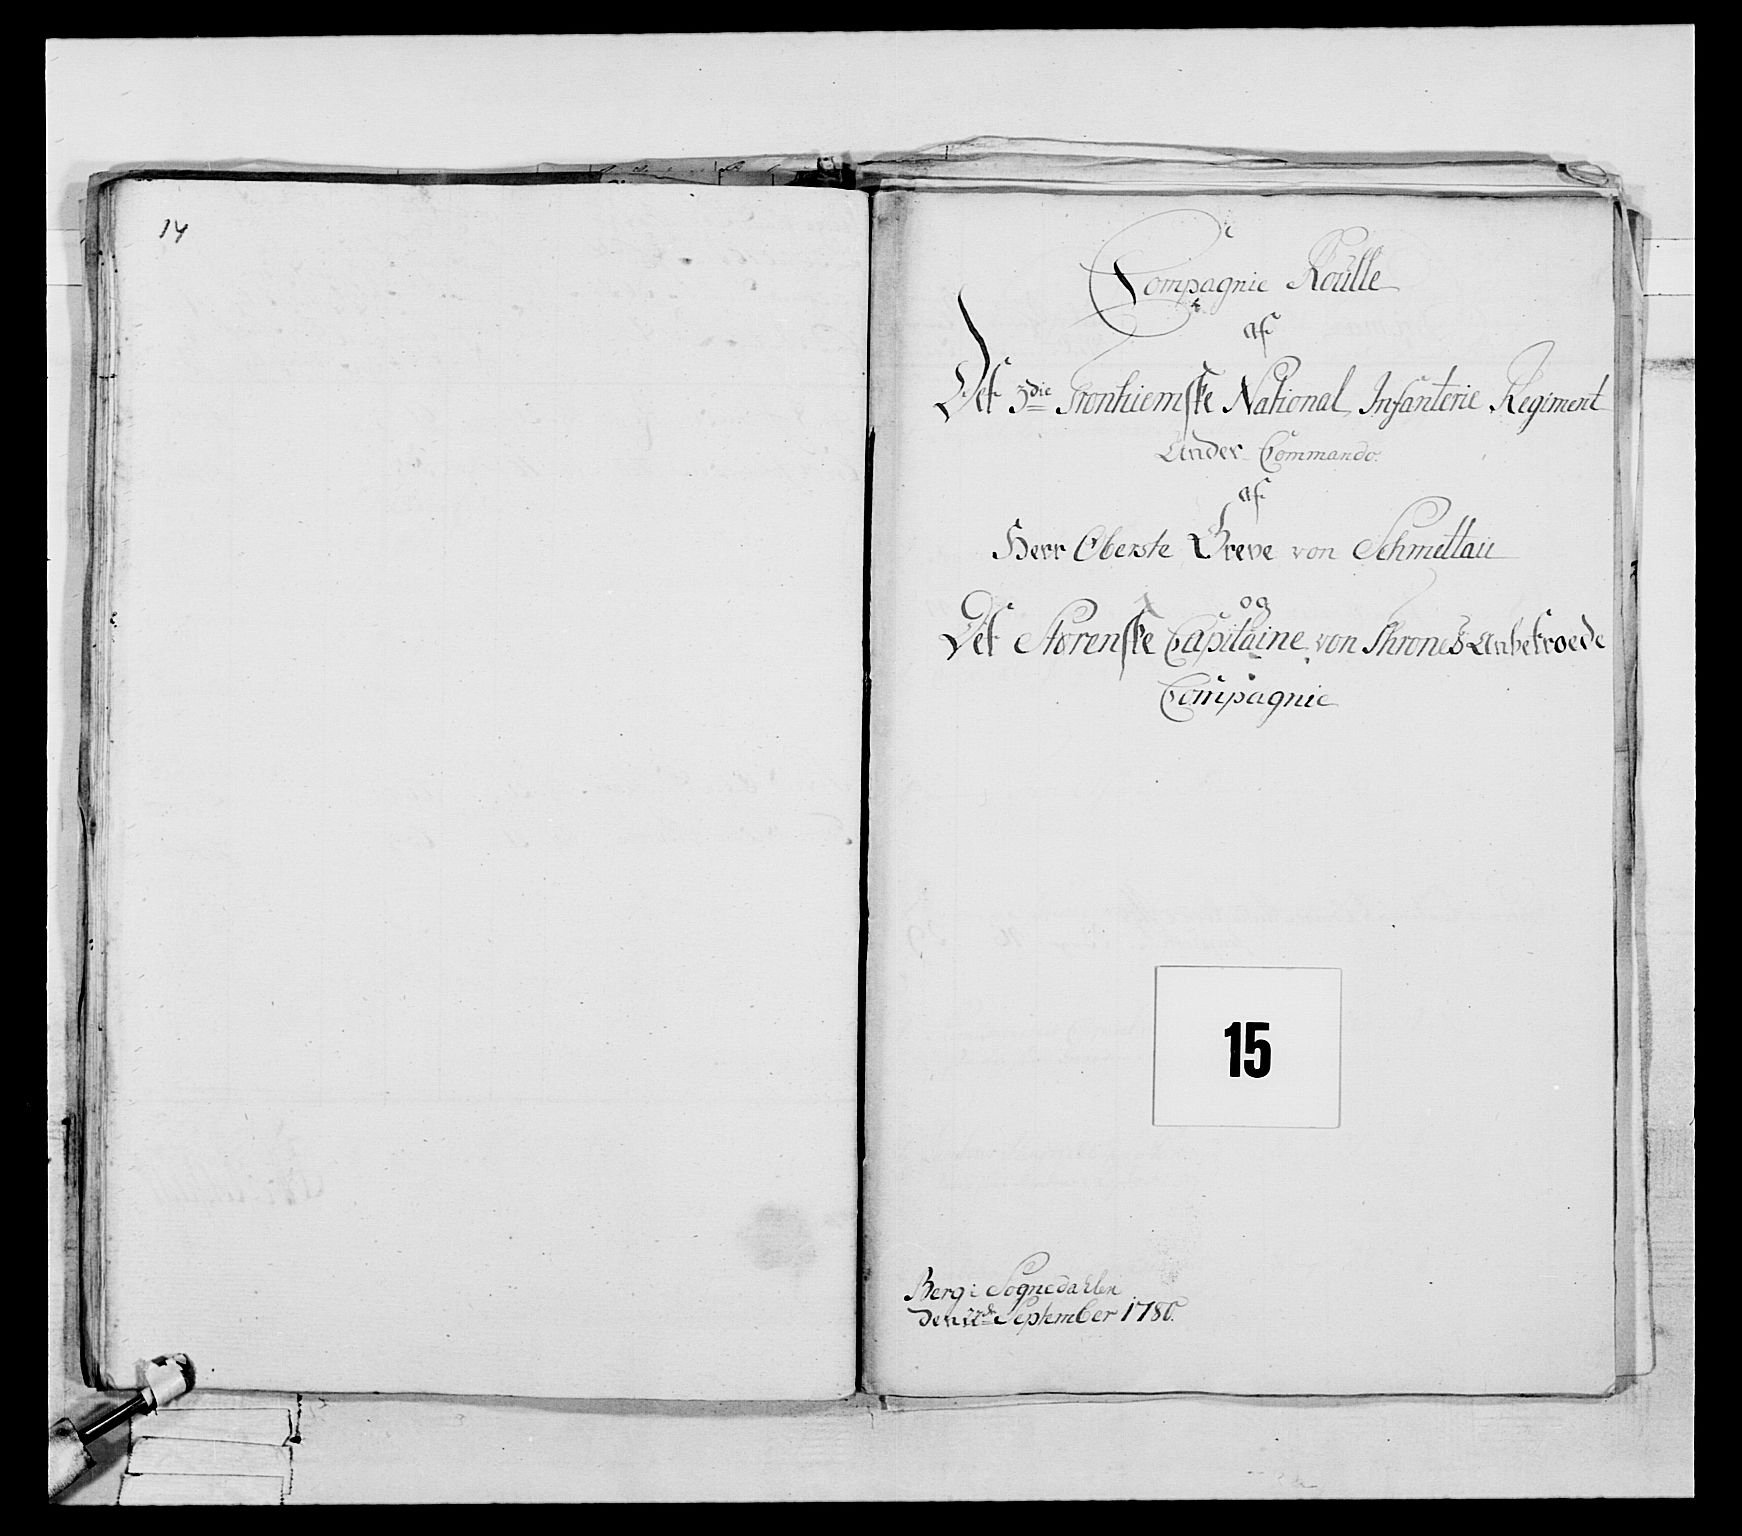 14
Compagnie Roulle
af
Det 3die Tronhiemske National Infanterie Regiment
Under Commando.
af
Herr Oberste Greve von Schmettau
og
Det Størenske Capitaine von Throne's Anbetroede
Compagnie
15
Berg i Sognedahlen
den 22de September 1780.